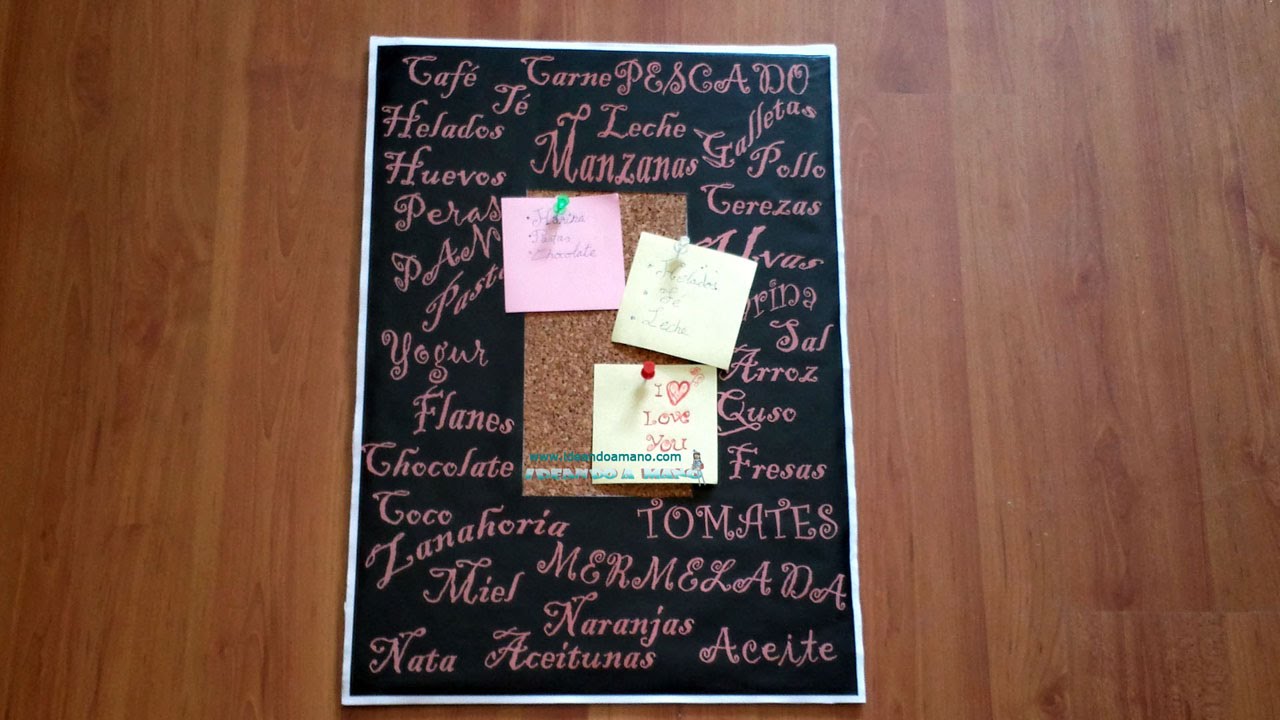 Café
Carne
PESCADO
Té
Helados
Leche
Galletas
Manzanas
Pollo
Huevos
Cerezas
Peras
PAN
Pasta
Uvas
Sal
Yogur
Arroz
Flanes
Quso
Chocolate
Fresas
Coco
Zanahoria
TOMATES
Miel
MERMELADA
Naranjas
Nata
Aceitunas
Aceite
• Harina
• Pastas
• Chocolate
• Helados
• Té
• Leche
I
Love
You
www.ideandoamano.com
IDEANDO A MANO